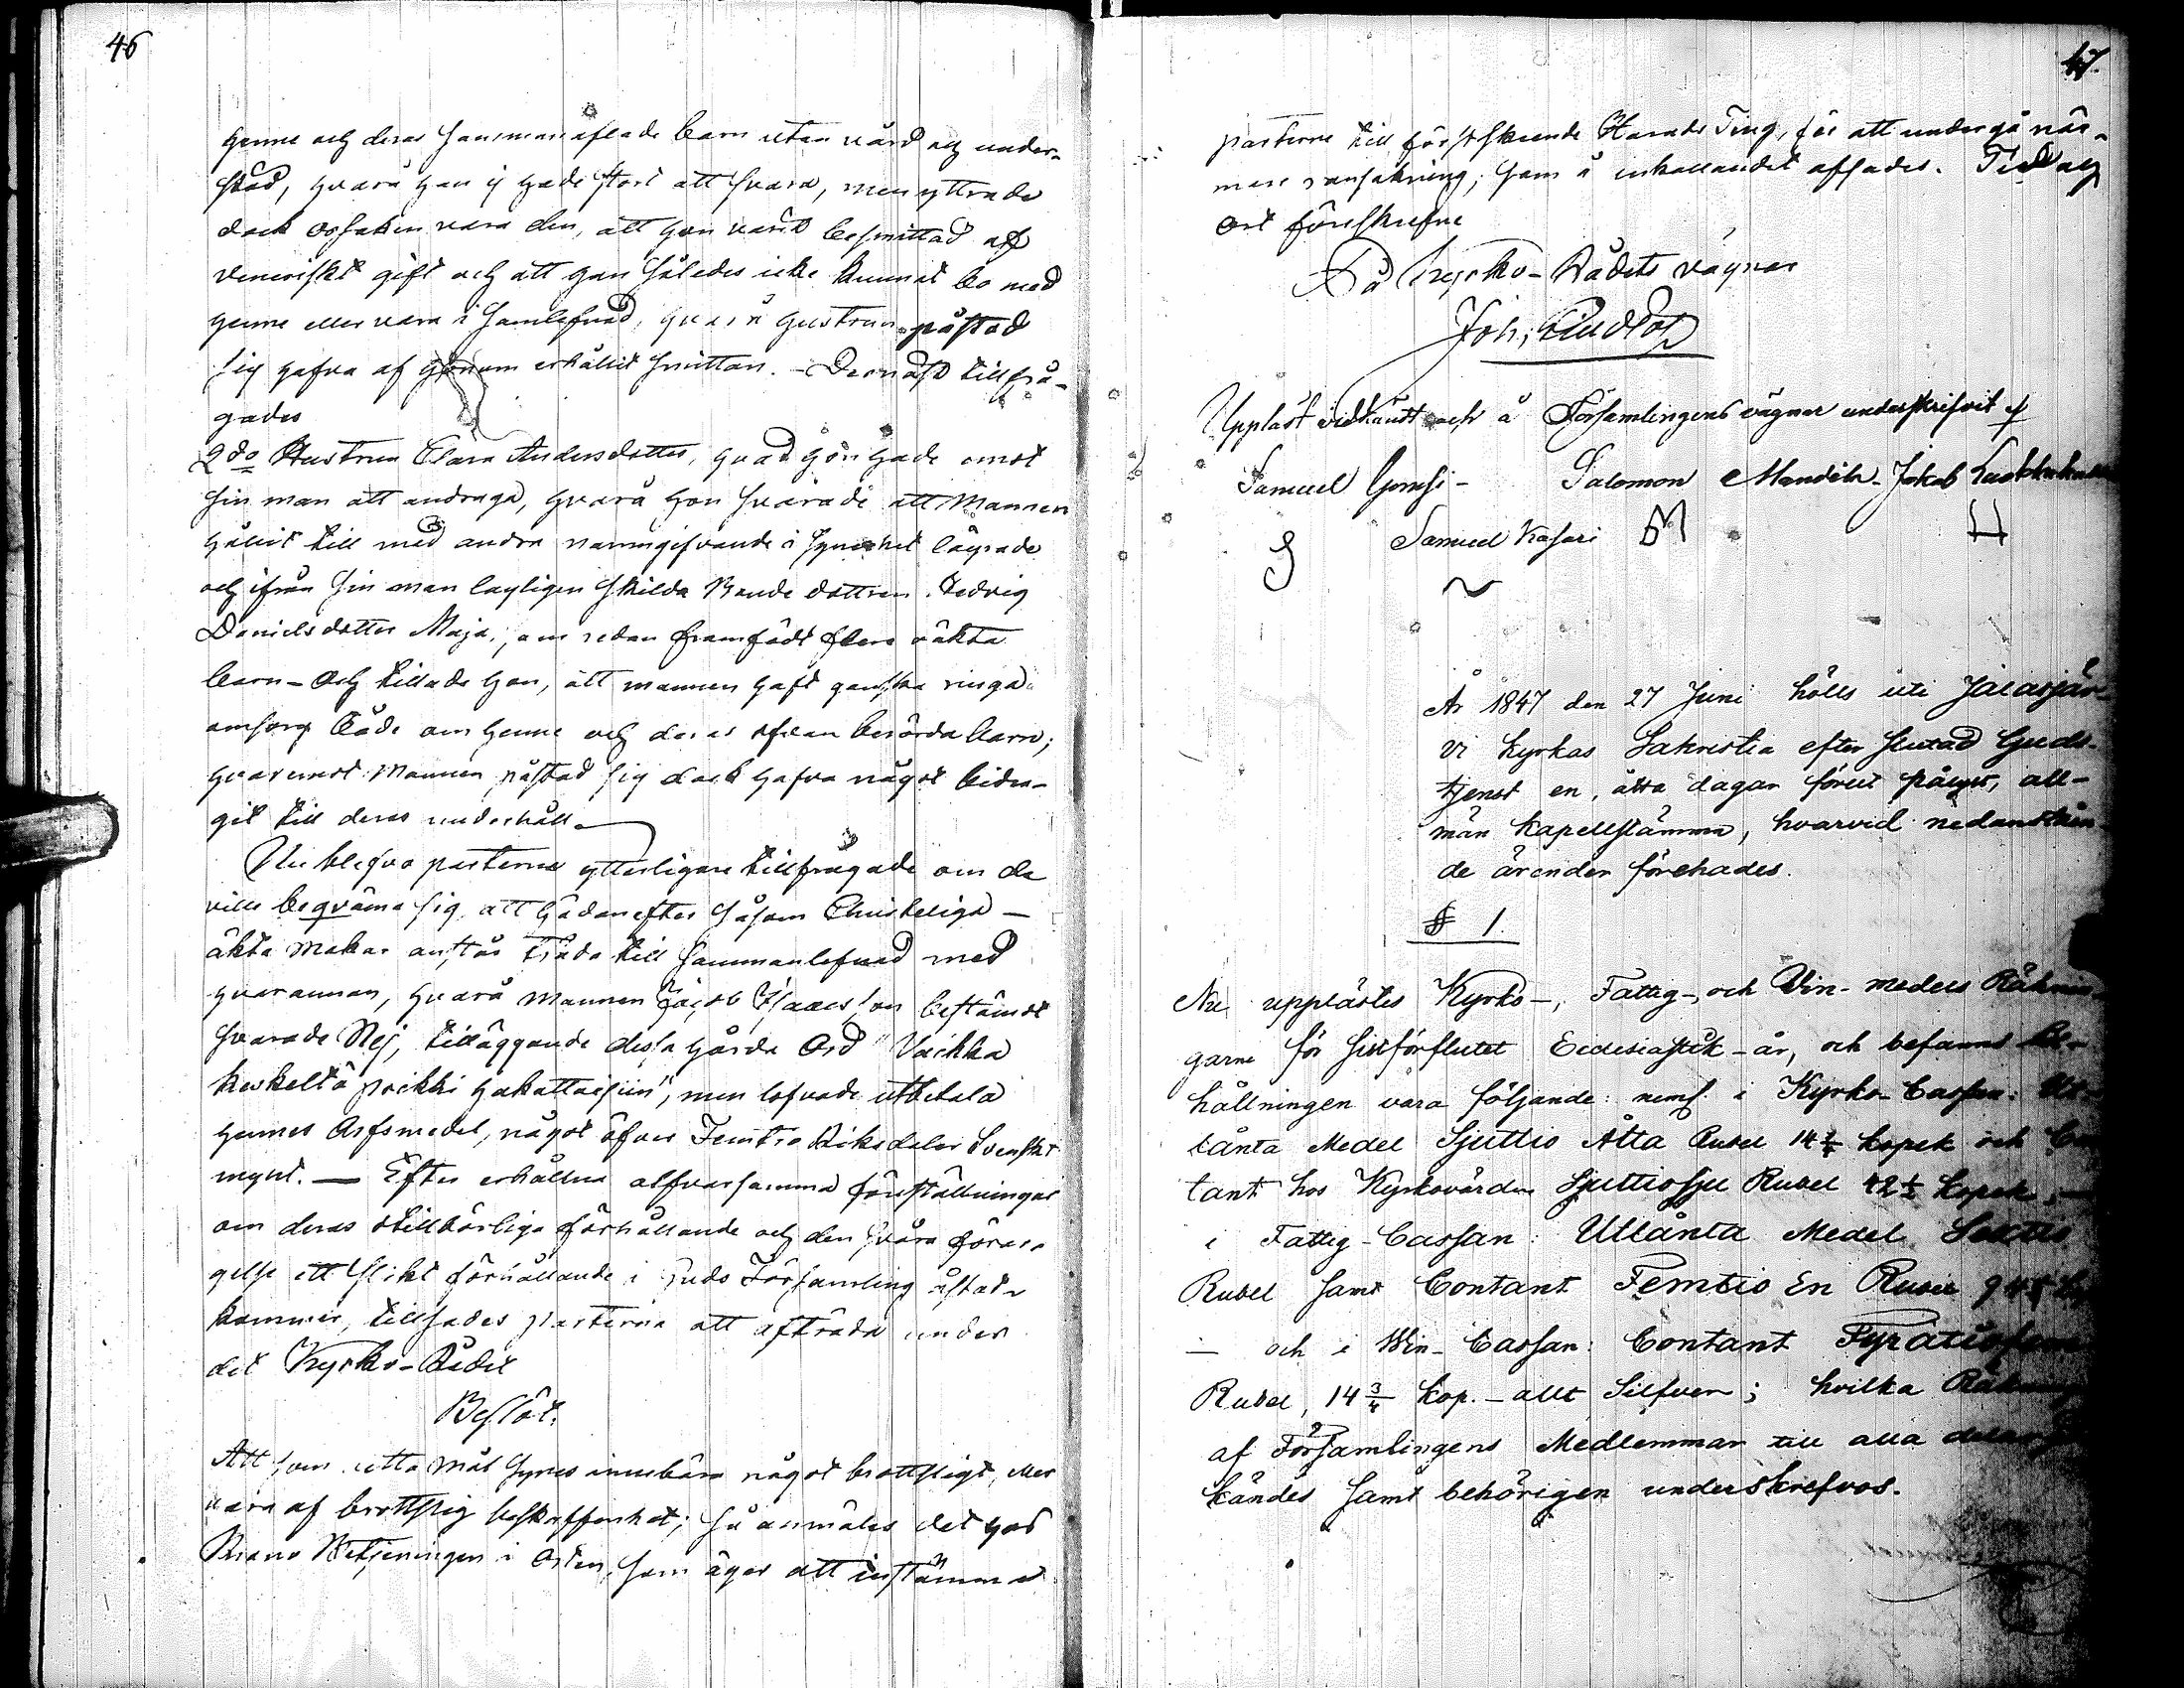 46
henne och deras sammanaflade barn utan vård och under-
stöd, hvarå han ej hade stort att svara, men yttrade
dock orsaken vara den, att hon varit besmittad af
veneriskt gift och att han således icke kunnat bo med
henne eller vara i samlefnad, hvarå hustrun påstod
sig hafva af honom erhållit smittan. - Dernäst tillfrå-
gades
2do Hustrun Clara Andersdotter, hvad hon hade emot
sin man att andraga, hvarå hon svarade att Mannen
hållit till med andra namngifvande i synnerhet lägrade
och ifrån sin man lagligen skilda Bonde dottren Hedvig
Danielsdotter Maja, som redan framfödt flera oäkta
barn - Och tillade hon, att mannen haft ganska ringa
omsorg både om henne och deras ofvan berörda barn;
hvaremot Mannen påstod sig dock hafva något bidra-
git till deras underhåll.
Nu blefvo parterna ytterligare tillfrågade om de
ville beqväma sig att hädanefter såsom Christeliga
äkta Makar  träda till sammanlefnad med
hvarannan, hvarå mannen Jacob Isaacsson bestämdt
svarade Nej, tilläggande dessa hårda Ord "Vaikka
keskeltä poikki hakattaisiin", men lofvade utbetala
hennes Arfsmedel, något öfver Femtio Riksdaler Svenskt
mynt. — Efter erhållna alfvarsamma föreställningar
om deras otillbörliga förhållande och den svåra förar-
gelse ett slikt förhållande i Guds Församling åstad-
kommer, tillsades parterna att afträda under
det Kyrko-Rådet
Beslöt.
Att som detta mål synes innebära något brottsligt, eller
vara af brottslig beskaffenhet; så anmäles det hos
Krono Betjeningen i Orten, som äger att instämma
47.
parterne till förstskeende Härads Ting, för att undergå när-
mare ransakning; som å inkallandet afsades. Tid och
Ort föreskrefne
På Kyrko-Rådets vägnar
Joh.
Uppläst vidkändt och å Församlingens vägnar underskrifvit af
Samuel Gonsi - Salomon Mandila - Jakob
S Samuel Kasari M H
År 1847 den 27 Juni hölls uti Jalasjär-
vi Kyrkas Sakristia efter slutad Guds-
tjenst en, åtta dagar förut pålyst, all-
män Kapellstämma, hvarvid nedanståen-
de ärenden förehades.
§ 1.
Nu upplästes Kyrko-, Fattig-, och Vin-medels Räknin-
garne för sistförflutet Ecclesiastik-år, och befanns Be-
hållningen vara följande: neml. i Kyrko-Cassan: Ut-
lånta Medel Sjuttio Åtta Rubel 14 kopek och Con-
tant hos Kyrkovärden Sjuttiosju Rubel 42 kopek, -
i Fattig-Cassan: Utlånta Medel Sextio
Rubel samt Contant Femtio En Rubel
- och i Win-Cassan: Contant Fyratiofem
Rubel, 14 3/4 Kop. - allt Silfver; hvilka
af Församlingens Medlemmar till alla delar
kändes samt behörigen underskrefvos.